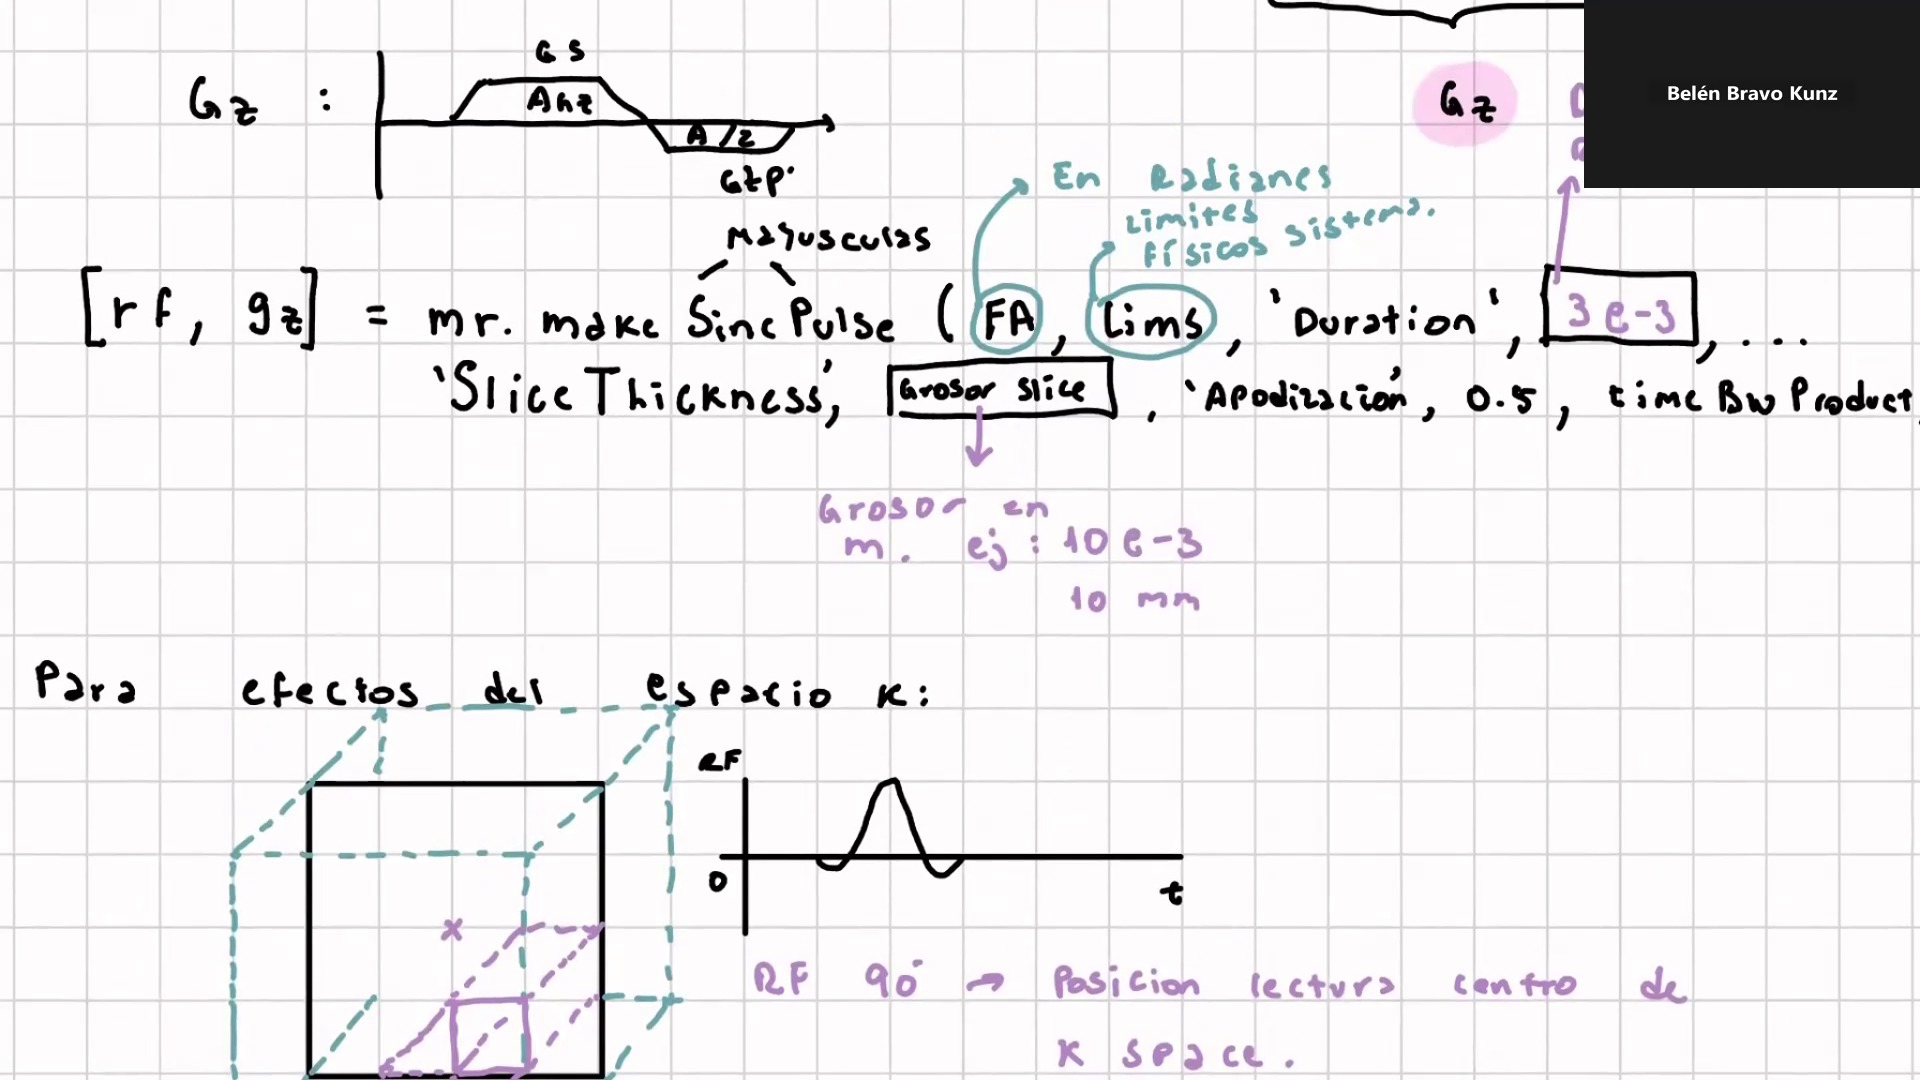 G s
Gz :
A Gz
A/2
Gz
Belén Bravo Kunz
Gzp.
En Radianes
Limites
físicos sistema.
Mayusculas
[rf, gz] = mr. make Sinc Pulse ( FA , Lims , 'Duration' , 3 e-3 , ...
'Slice Thickness', Grosor slice , 'Apodización', 0.5 , time Bw Product
Grosor en
m. ej : 10 e-3
10 mm
Para efectos del espacio k:
RF
0
t
x
RF 90° → Posicion lectura centro de
K space.